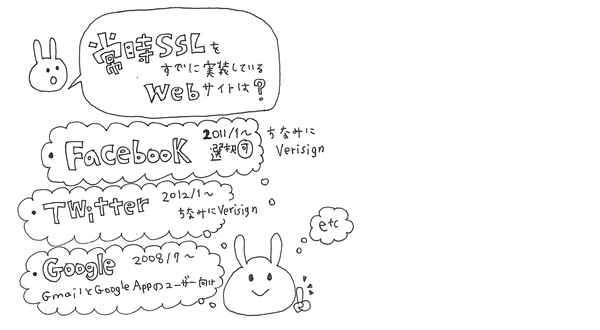 常時SSLを
すでに実装している
Webサイトは?
・Facebook 2011/1〜 選択可 ちなみに Verisign
・Twitter 2012/1〜
ちなみにVerisign
etc
・Google 2008/7〜
GmailとGoogle Appのユーザー向け